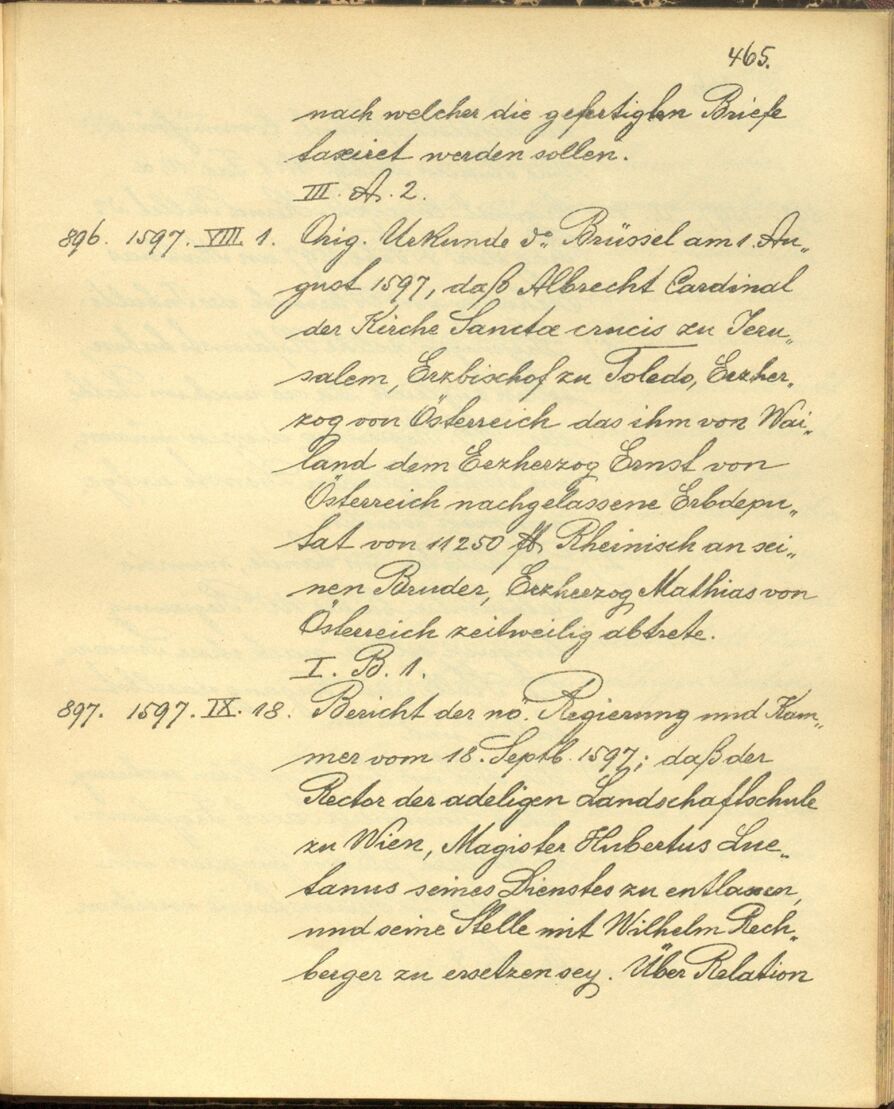 465.
nach welcher die gefertigten Briefe
taxiret werden sollen.
III. A. 2.
896. 1597. VIII. 1. Orig. Urkunde do Brüssel am 1. Au„
gust 1597, daß Albrecht Cardinal
der Kirche Sanctæ crucis zu Jeru„
salem, Erzbischof zu Toledo, Erzher„
zog von Österreich das ihm von Wai„
land dem Erzherzog Ernst von
Österreich nachgelassene Erbdepu„
tat von 11250 fl. Rheinisch an sei„
nen Bruder, Erzherzog Mathias von
Österreich zeitweilig abtrete.
I. B. 1.
897. 1597. IX. 18. Bericht der nö. Regierung und Kam„
mer vom 18. Septb. 1597; daß der
Rector der adeligen Landschaftschule
zu Wien, Magister Hubertus Lue„
tanus seines Dienstes zu entlassen,
und seine Stelle mit Wilhelm Rech„
berger zu ersetzen sey. Über Relation